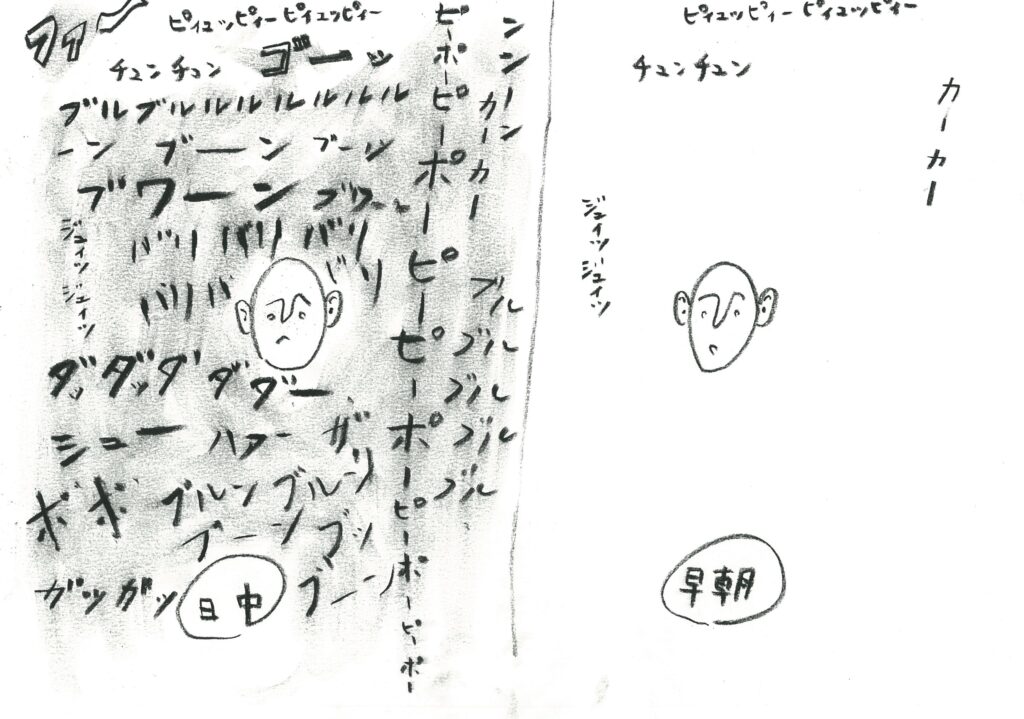 ピイユッピィー ピイユッピィー
チュン チュン
ゴーッ
ブル ブルルルルルルル
ーン ブーン ブーッ
ブワーン ブワー
ジュイッ ジュイッ
バリ バリ バリ
バリ バ バリ
ダッダッダ ダダー
シュー ハアー ザ
ボボ ブルン ブルーン
ブーン ブッ
ガッガッ
日中
ブーン
ピーポーピーポーピーピーポーピーポーピーポー
カーカー
ブル
ブル
ブル
ブル
ブル
ピイユッピィー ピイユッピィー
チュン チュン
カーカー
ジュイッ ジュイッ
早朝